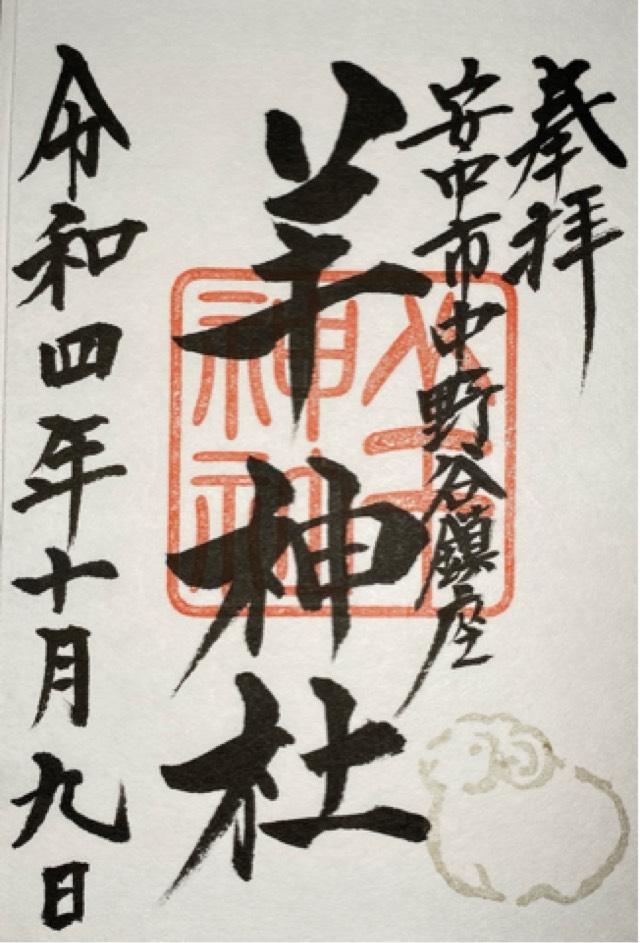 奉拝
安中市中野谷鎮座
羊神社
令和四年十月九日